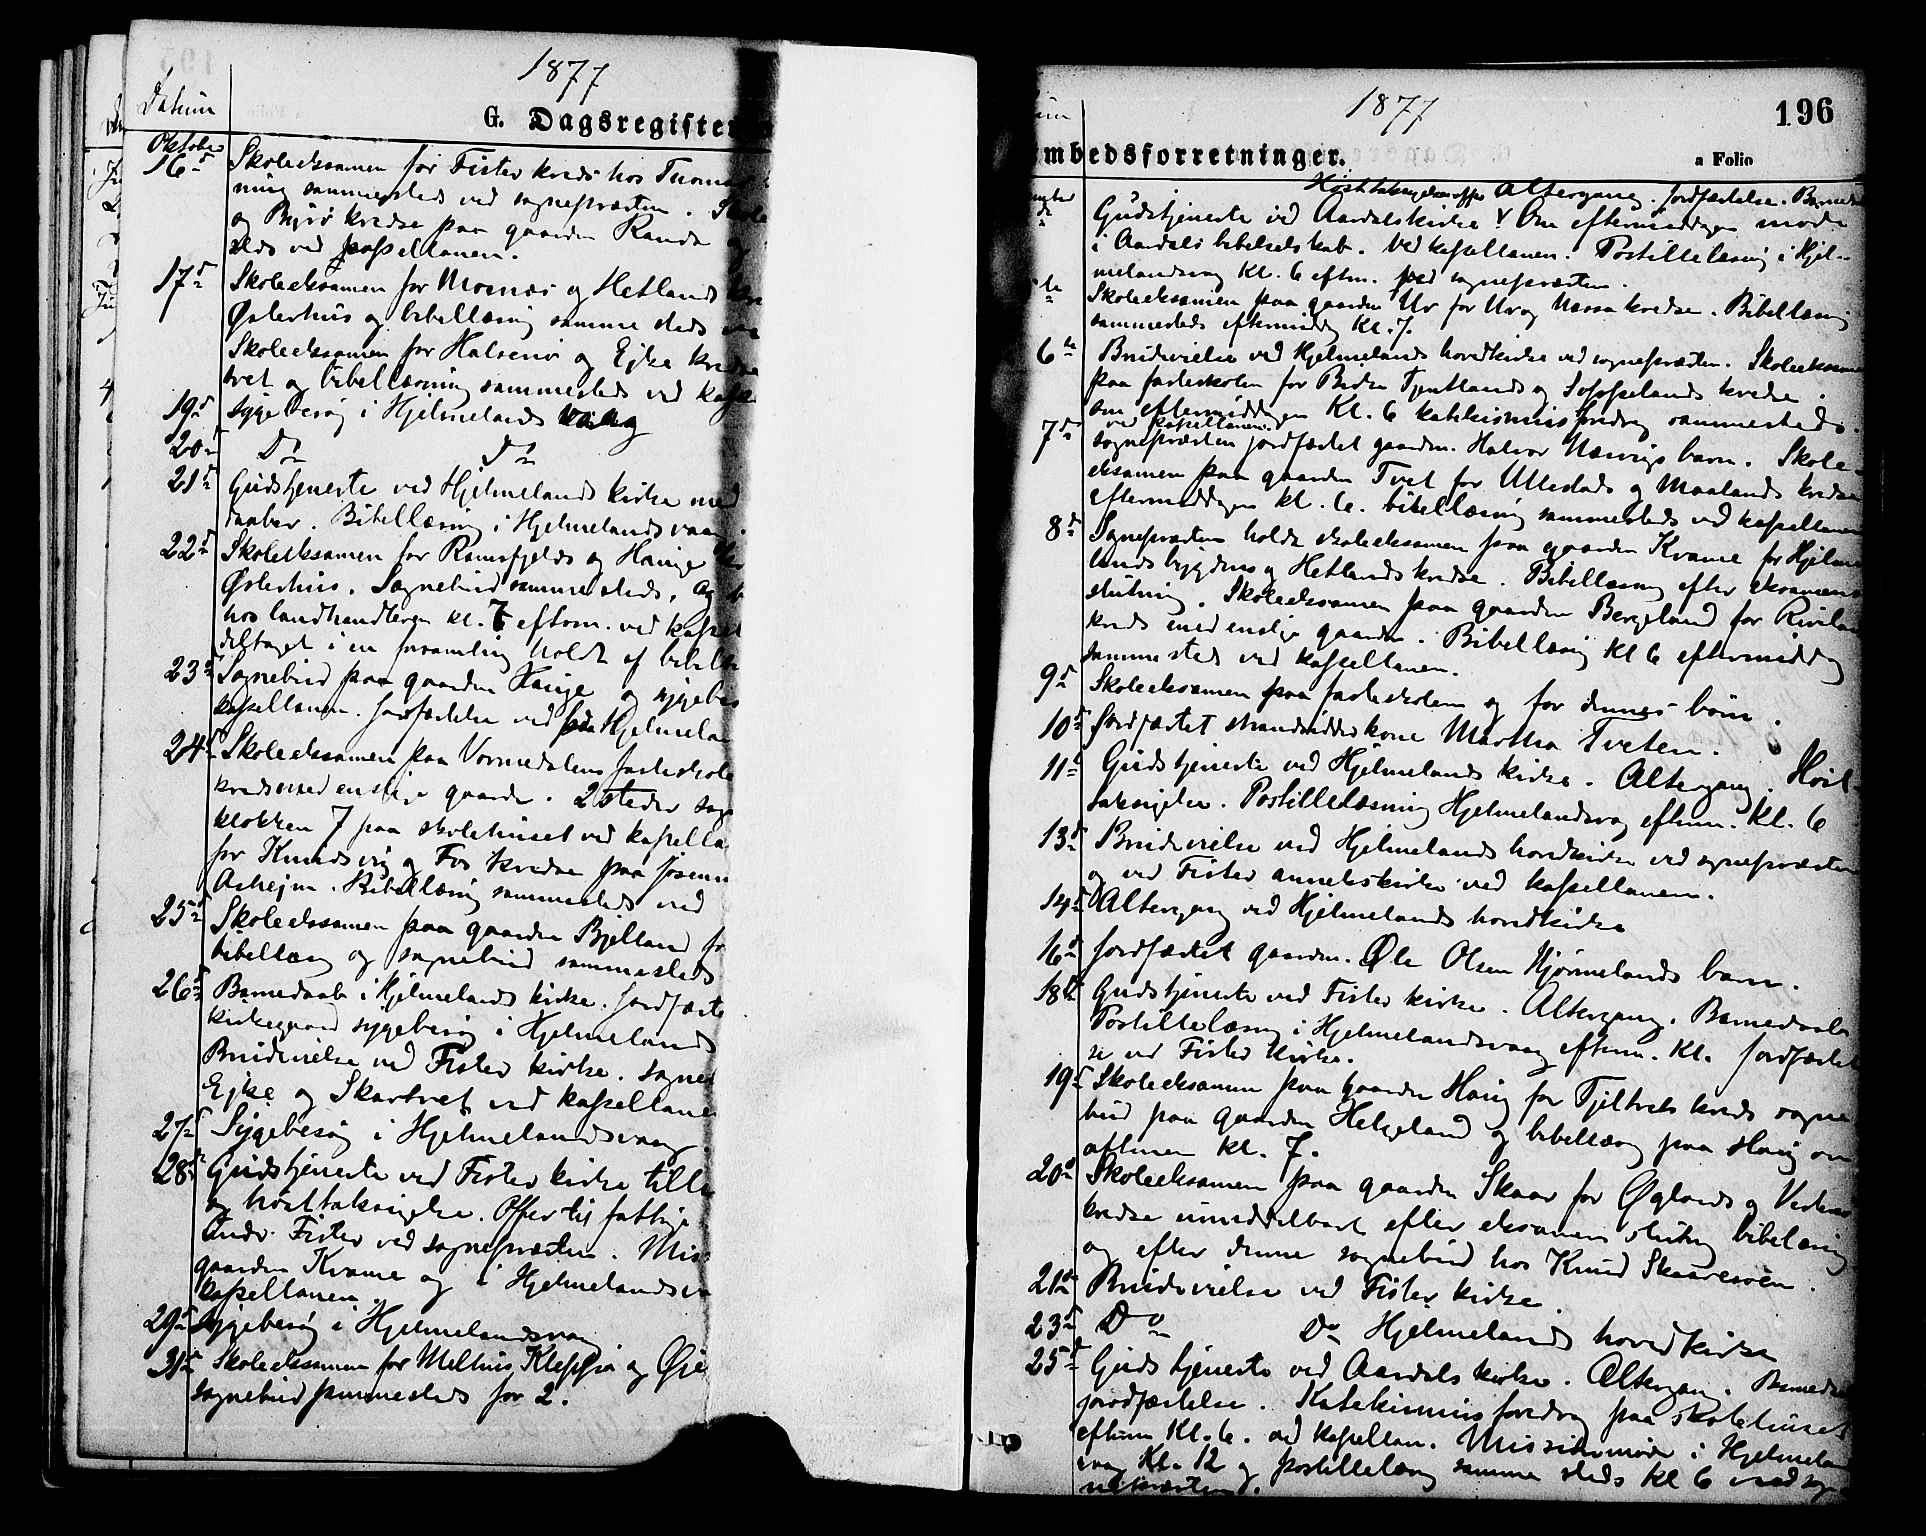 1877
Datum
G. Dagsregister
Oktober
16d Skoleeksamen for Fister kreds hos Thomas
ning sammesteds ved sognepræsten. Skole
og Byrø kredse paa gaarden Randa og
steds ved kapellanen.
17d Skoleeksamen for Mosnæs og Hetlands kre
Østerhus og bibellæsning samme steds ve
Skoleeksamen for Halsenø og Ejke kredse
tvet og bibellæsning sammesteds ved kape
19d sygebesøg i Hjelmelandsvaag
20d Do Do
21d Gudstjeneste ved Hjelmelands kirke med
daaber. Bibellæsning i Hjelmelandsvaag.
22d Skoleeksamen for Ramsfjelds og Hauge
Østerhus. Sognebud sammesteds. Og b
hos landhandleren kl. 7 efterm. ved kapel
deltaget i en forsamling holdt af bibelb
23d Sognebud paa gaarden Hauge og sygebes
kapellanen. Jordfæstelse ved Hjelmelan
24d Skoleeksamen paa Vormedalens fasteskole
kreds med enslige gaarde. 2 steder sog
klokken 7 paa skolehuset ved kapella
for Knudsvig og Fos kredse paa Jøsenø
Askejm. Bibellæsning sammesteds ved
25d Skoleeksamen paa gaarden Bjelland fo
bibellæsning og sognebud sammesteds
26d Barnedaab i Hjelmelands kirke. Jordfæste
kirkegaard sygebesøg i Hjelmelands
Brudevielse ved Fister kirke. sogne
Ejke og Skartvet ved kapellane
27d Sygebesøg i Hjelmelandsvaag.
28d Gudstjeneste ved Fister kirke tille
og høsttaksigelse. Offer til fattige
Andr. Fister ved sognepræsten. Miss
gaarden Kvame og i Hjelmelandsva
kapellanen.
29d Sygebesøg i Hjelmelandsvaag
31d Skoleeksamen for Melhus Kleppa og Øje
sognebud sammesteds for 2.
1877
196
mbedsforretninger.
a Folio
Høsttaksigelsesoffer Altergang. Jordfæstelse. Barneda
Gudstjeneste ved Aardalskirke. Om eftermiddagen møde
i Aardals bibelselskab. Ved kapellanen. Postillelæsning i Hjel-
melandsvaag kl. 6 eftm. ved sognepræsten.
Skoleeksamen paa gaarden Ur for Ur og Nessa kredse. Bibellæsning
sammesteds eftermiddag Kl. 7.
6te Brudevielse ved Hjelmelands hovedkirke ved sognepræsten. Skoleeksam
paa fasteskolen for Tjentlands og Soppelands kredse.
om eftermiddagen Kl. 6 katekismusforedrag sammesteds.
ved kapellanen.
7d sognepræsten jordfæstet gaardm. Halvor Næsvigs barn. Skole-
eksamen paa gaarden Tvet for Ullestads og Maalands kredse
eftermiddagen kl. 6. bibellæsning sammesteds ved kapellanen
8d Sognepræsten holdt skoleeksamen paa gaarden Kvame for Hjelme
landsbygdens og Hetlands kredse. Bibellæsning efter eksamens
slutning. Skoleeksamen paa gaarden Bergeland for Rivelan
kreds med enslige gaarde. Bibellæsning kl 6 eftermiddag
sammested ved kapellanen.
9d Skoleeksamen paa fasteskolen og for dennes børn.
10d Jordfæstet strandsidderkone Martha Tveten.
11te Gudstjeneste ved Hjelmelands kirke. Altergang. Høst-
taksigelse. Postillelæsning Hjelmelandsvag efterm. kl. 6
13d Brudevielse ved Hjelmelands hovedkirke ved sognepræsten
og ved Fister annekskirke ved kapellanen.
14d Altergang ved Hjelmelands hovedkirke
16d Jordfæstet gaardm. Ole Olsen Hjørmelands barn.
18de Gudstjeneste ved Fister kirke. Altergang. Barnedaab
Postillelæsning i Hjelmelandsvaag efterm. Kl. Jordfæstel
se ved Fister kirke.
19d Skoleeksamen paa gaarden Haug for Tjeltvets kreds sogne
bud paa gaarden Helgeland og bibellæsning paa Haug om
aftenen kl. 7.
20d Skoleeksamen paa gaarden Skaar for Øglands og Vestre
kredse umiddelbart efter eksamens slutning bibelæsning
og efter denne sognebud hos Knud Skaaresøen.
21d Brudevielse ved Fister kirke.
23d Do Do Hjelmelands hovedkirke
25d Gudstjeneste ved Aardals kirke. Altergang. Barneda
jordfæstelse. Katekismusforedrag paa skolehuset
efterm Kl. 6. ved kapellan. Missionsmøde i Hjelmeland
vaag Kl. 12 og postillelæsning samme steds kl 6 ved sog
nepræsten.